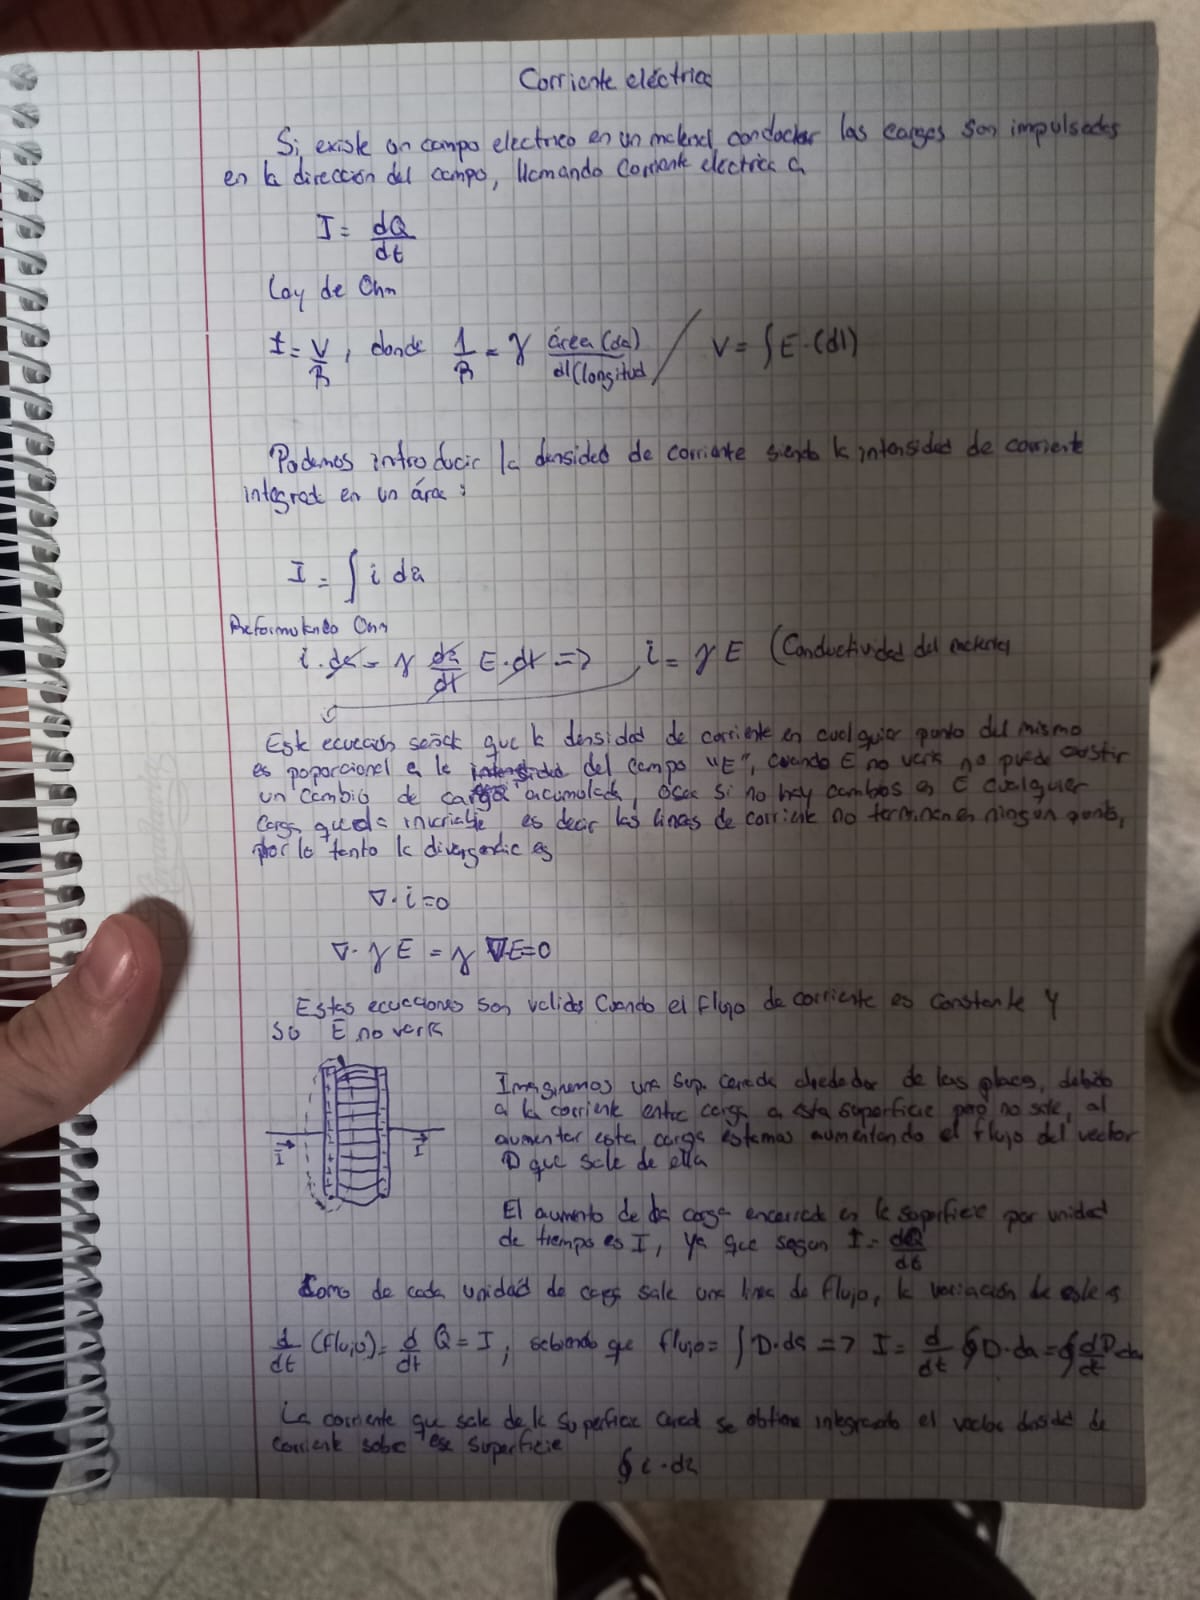 Corriente eléctrica
Si existe un campo electrico en un material conductor las cargas son impulsadas
en la dirección del campo, llamando Corriente electrica a
I = dQ/dt
Ley de Ohm
I = V/R, donde 1/R = γ área(da)/dl(longitud / V = ∫E·(dl)
Podemos introducir la densidad de corriente siendo la intensidad de corriente
integrada en un área:
I = ∫ i da
Reformulando Ohm
i·da = γ da/dl E·dl => i = γE (Conductividad del material
Esta ecuación señala que la densidad de corriente en cualquier punto del mismo
es poporcional a la intensidad del campo "E", cuando E no varia no puede existir
un cambio de carga acumulada, osea si no hay cambios en E cualquier
carga queda invariable es decir las lineas de corriente no terminan en ningun punto,
por lo tanto la divergencia es
∇·i=0
∇·γE = γ∇·E=0
Estas ecuaciones son validas Cuando el Flujo de corriente es constante y
si E no varia
I
I
Imaginemos una sup. cerrada alrededor de las placas, debido
a la corriente entra carga a esta superficie pero no sale, al
aumentar esta carga estamos aumentando el flujo del vector
D que sale de ella
El aumento de la carga encerrada en la superficie por unidad
de tiempo es I, ya que segun I = dQ/dt
Como de cada unidad de carga sale una linea de flujo, la variación de este es
d/dt (flujo) = d/dt Q = I, sabiendo que flujo = ∫D·da => I = d/dt ∮D·da = ∮dD/dt da
La corriente que sale de la superficie cerrada se obtiene integrando el vector densidad de
corriente sobre esa superficie
∮ i·da